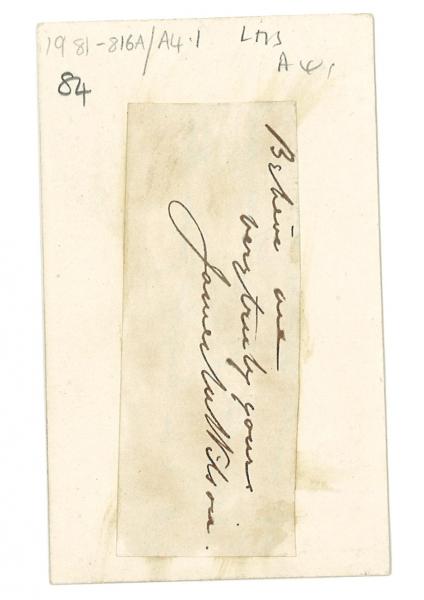 1981-816A/A4.1 LMS
A4,
84
Believe me
very truly yours
James W Wilson.